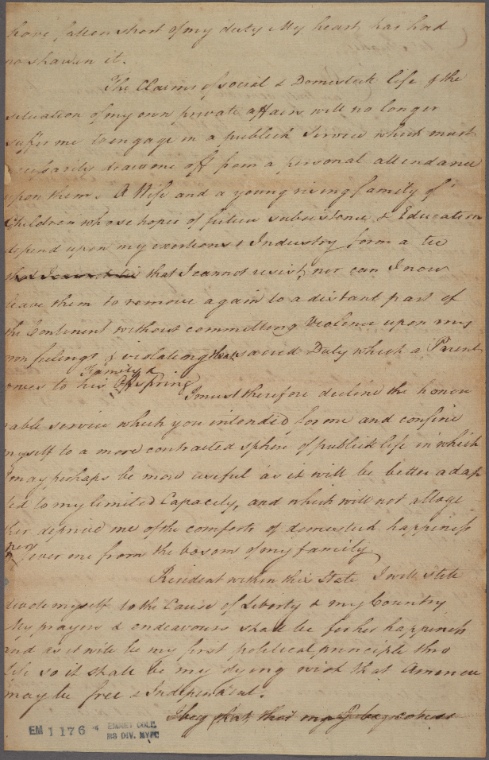 have fallen short of my duty My heart has had
no share in it.
The Claims of social & Domestick life & the
situation of my own private affairs will no longer
suffer me to engage in a publick Service which must
necessarily draw me off from a personal attendance
upon them. A Wife and a young rising family of
Children whose hopes of future subsistence & Education
depend upon my exertions & Industry form a tie
that I cannot resist, nor can I now
leave them to remove again to a distant part of
the Continent without committing Violence upon my
own feelings & violating that sacred Duty which a Parent
owes to his Family & Offspring
I must therefore decline the honor
able service which you intended for me and confine
myself to a more contracted sphere of publick life in which
I may perhaps be more useful as it will be better adap
ted to my limited Capacity, and which will not altoge
ther deprive me of the comforts of domestick happiness
ever me from the bosom of my family
Resident within this State I will still
devote myself to the Cause of Liberty & my Country
My prayers & endeavours shall be for her happiness
and as it will be my first political principle thro
life so it shall be my dying wish that America
may be free & Independent.
I beg that their my
EM 1176
EMMET COLL.
MS DIV. NYPL